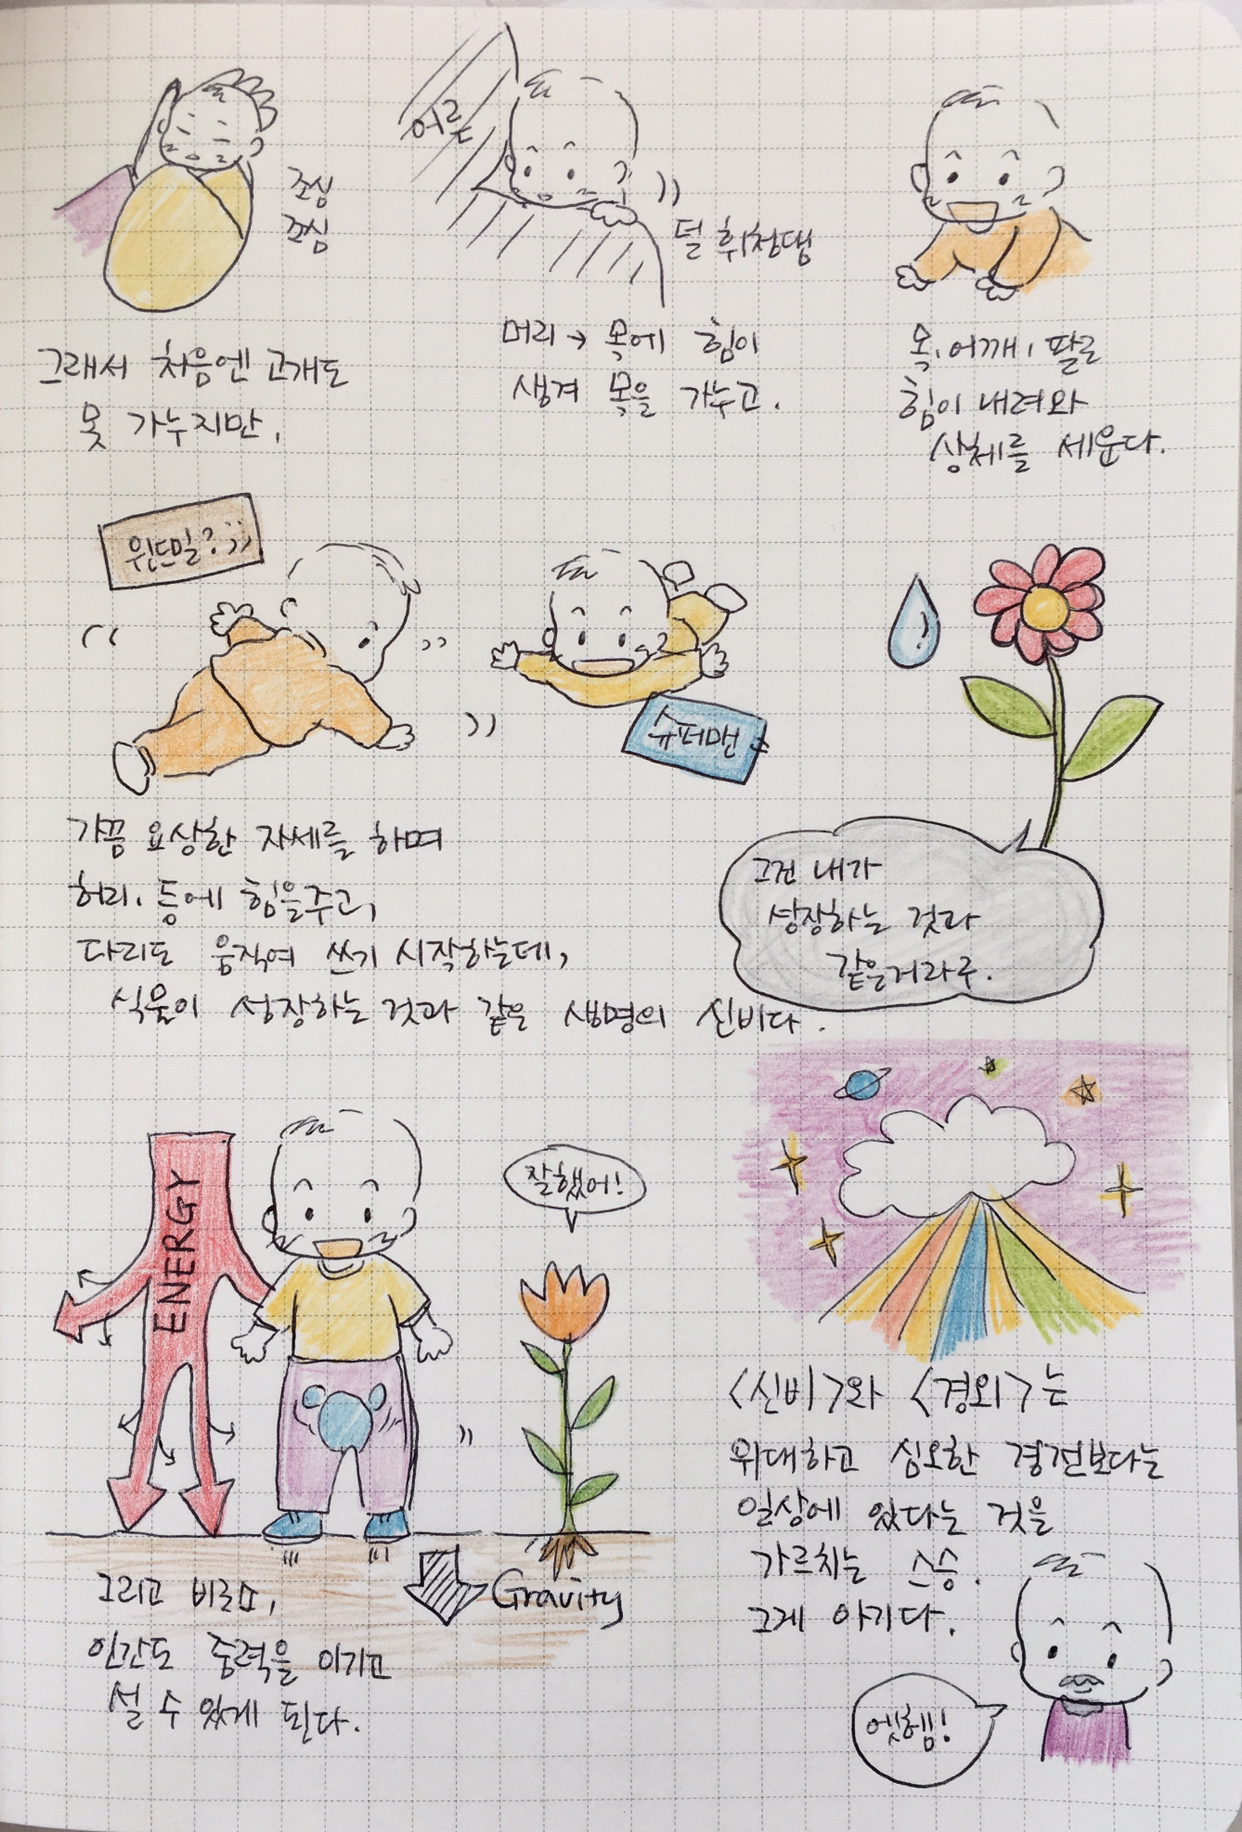 조심
조심
그래서 처음엔 고개도
못 가누지만,
어른
덜 휘청댐
머리→ 목에 힘이
생겨 목을 가누고.
목, 어깨, 팔로
힘이 내려와
상체를 세운다.
윈드밀?;;
슈퍼맨
가끔 요상한 자세를 하며
허리, 등에 힘을주고,
다리도 움직여 쓰기 시작하는데,
식물이 성장하는 것과 같은 생명의 신비다.
그건 내가
성장하는 것과
같은거라구.
ENERGY
잘했어!
Gravity
그리고 비로소,
인간도 중력을 이기고
설 수 있게 된다.
<신비>와 <경외>는
위대하고 심오한 경전보다는
일상에 있다는 것을
가르치는 스승.
그게 아기다.
엣헴!